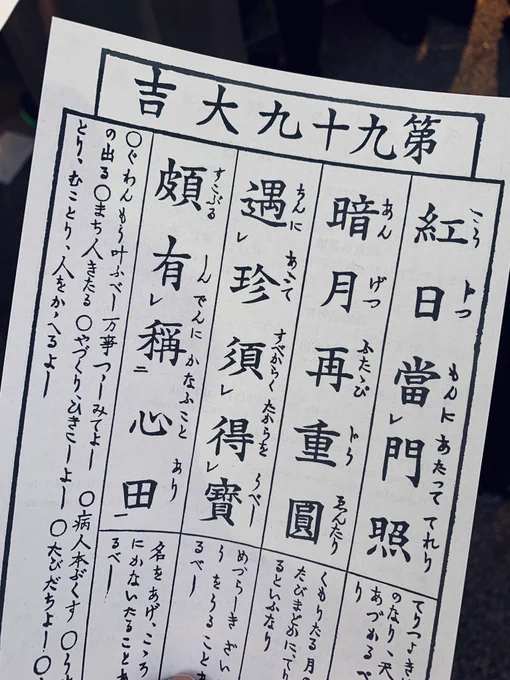 第九十九大吉
紅日當門照
こうじつもんにあたっててれり
暗月再重圓
あんげつふたゝびかさなってゑんたり
遇珍須得寶
ちんにあふてすべからくたからをうべし
頗有稱心田
すこぶるしんでんにかなふことあり
てりつよき
のなり、天
あづめるべ
り
くもりたる月の
たびまどかに、てり
るといふなり
めづらしきざい
らをうることあ
るべし
名をあげ、こゝろ
にかないたることあ
るべし
〇ぐわんもう叶ふべし万事つゝしみてよし〇病人本ぶくす〇うせも
の出る〇まち人きたる〇やづくり、ひきこしよし〇たびだちよし〇
とり、むことり、人をかゝへるよし